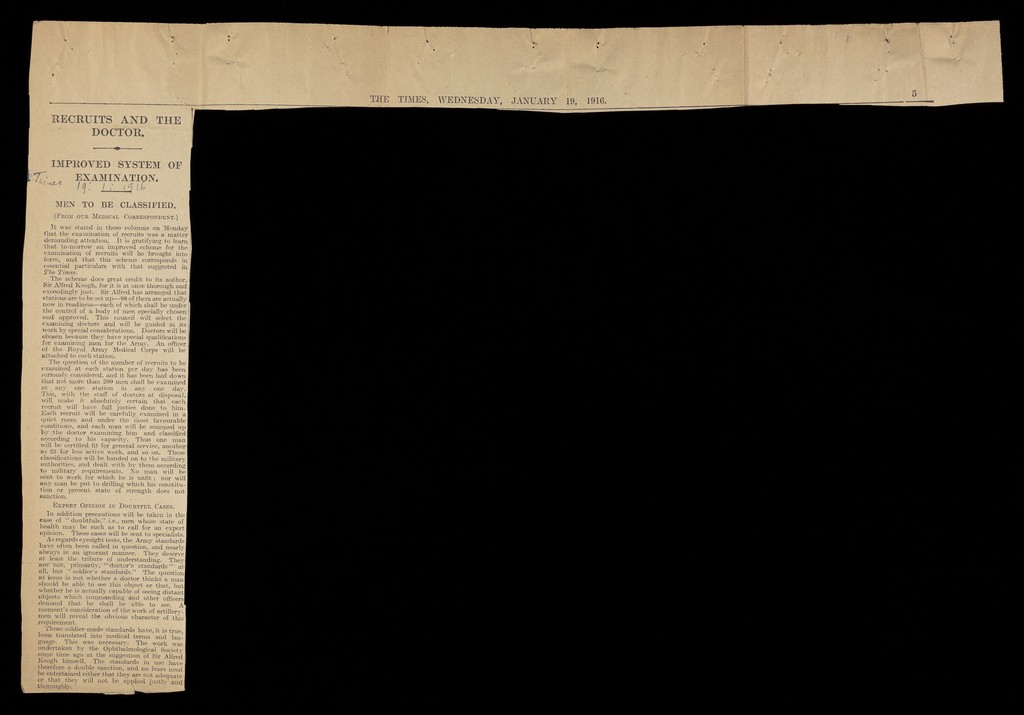 THE TIMES, WEDNESDAY, JANUARY 19, 1916.
5
RECRUITS AND THE
DOCTOR.
IMPROVED SYSTEM OF
EXAMINATION.
Times 19: 1: 1916
MEN TO BE CLASSIFIED.
(FROM OUR MEDICAL CORRESPONDENT.)
It was stated in these columns on Monday
that the examination of recruits was a matter
demanding attention. It is gratifying to learn
that to-morrow an improved scheme for the
examination of recruits will be brought into
force, and that this scheme corresponds in
essential particulars with that suggested in
The Times.
The scheme does great credit to its author,
Sir Alfred Keogh, for it is at once thorough and
exceedingly just. Sir Alfred has arranged that
stations are to be set up—98 of them are actually
now in readiness—each of which shall be under
the control of a body of men specially chosen
and approved. This council will select the
examining doctors and will be guided in its
work by special considerations. Doctors will be
chosen because they have special qualifications
for examining men for the Army. An officer
of the Royal Army Medical Corps will be
attached to each station.
The question of the number of recruits to be
examined at each station per day has been
seriously considered, and it has been laid down
that not more than 200 men shall be examined
at any one station in any one day.
This, with the staff of doctors at disposal,
will make it absolutely certain that each
recruit will have full justice done to him.
Each recruit will be carefully examined in a
quiet room and under the most favourable
conditions, and each man will be summed up
by the doctor examining him and classified
according to his capacity. Thus one man
will be certified fit for general service, another
as fit for less active work, and so on. These
classifications will be handed on to the military
authorities, and dealt with by them according
to military requirements. No man will be
sent to work for which he is unfit; nor will
any man be put to drilling which his constitu-
tion or present state of strength does not
sanction.
EXPERT OPINION IN DOUBTFUL CASES.
In addition precautions will be taken in the
case of "doubtfuls," i.e., men whose state of
health may be such as to call for an expert
opinion. These cases will be sent to specialists.
As regards eyesight tests, the Army standards
have often been called in question, and nearly
always in an ignorant manner. They deserve
at least the tribute of understanding. They
are not, primarily, "doctor's standards" at
all, but "soldier's standards." The question
at issue is not whether a doctor thinks a man
should be able to see this object or that, but
whether he is actually capable of seeing distant
objects which commanding and other officers
demand that he shall be able to see. A
moment's consideration of the work of artillery-
men will reveal the obvious character of this
requirement.
These soldier-made standards have, it is true,
been translated into medical terms and lan-
guage. This was necessary. The work was
undertaken by the Ophthalmological Society
some time ago at the suggestion of Sir Alfred
Keogh himself. The standards in use have
therefore a double sanction, and no fears need
be entertained either that they are not adequate
or that they will not be applied justly and
thoroughly.